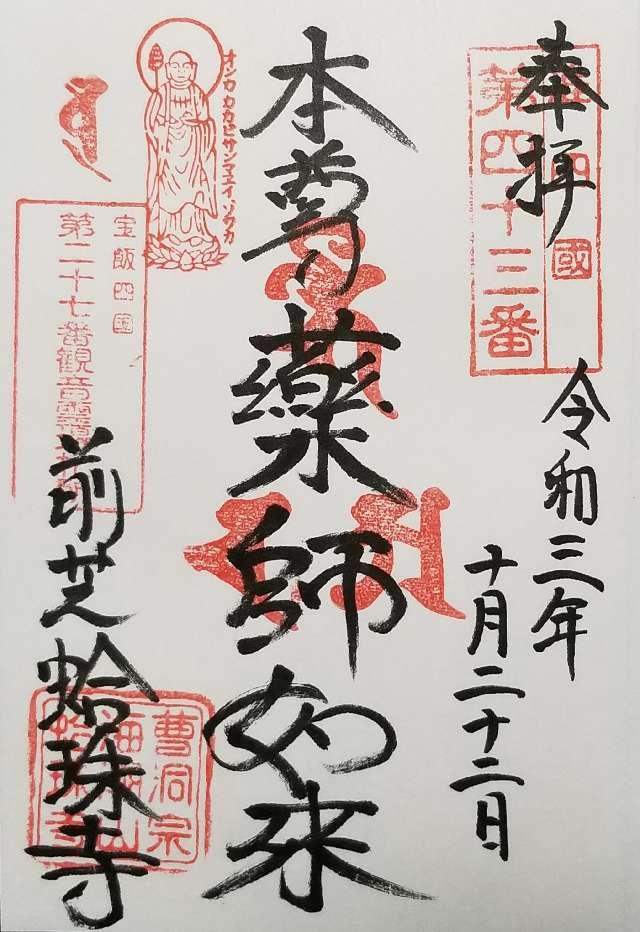 奉拝
國
第四十三番
令和三年
十月二十二日
本尊薬師如来
オンカカカビサンマエイソワカ
宝飯四国
第二十七番観音霊
前芝蛤珠寺
曹洞宗
海
山
蛤珠寺